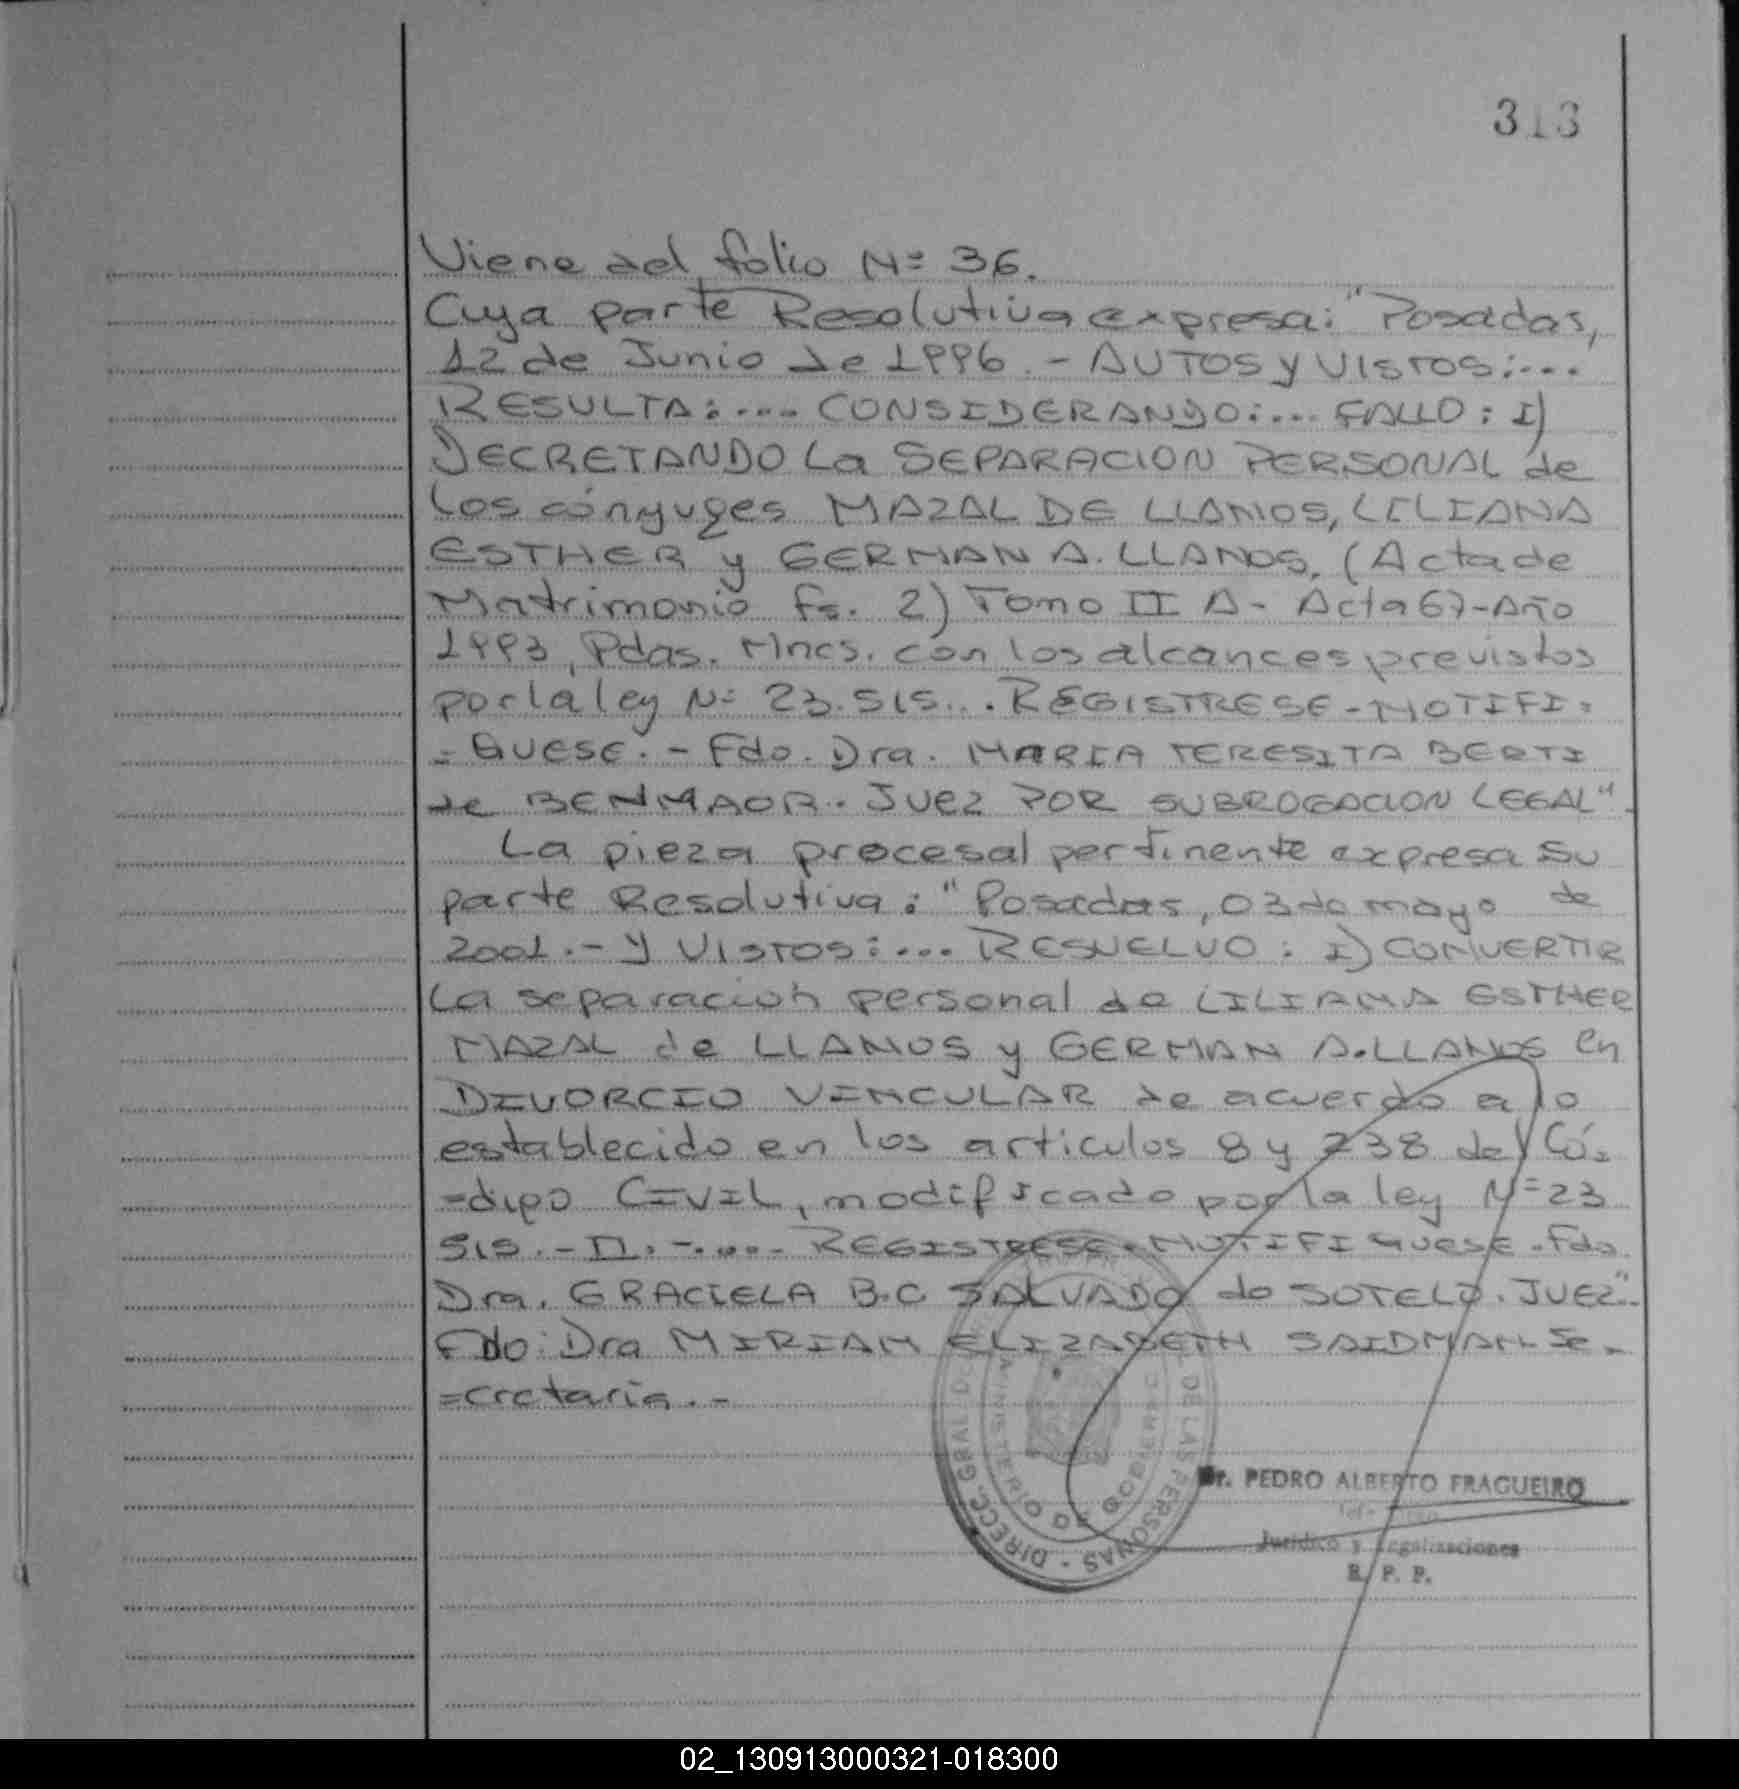 313
Viene del folio N= 36.
Cuya parte Resolutiva expresa: "Posadas,
12 de Junio de 1996. - AUTOS y VISTOS:...
RESULTA:.... CONSIDERANDO:.... FALLO: I)
DECRETANDO La SEPARACION PERSONAL de
los cónyuges MAZAL DE LLANOS, LILIANA
ESTHER y GERMAN A. LLANOS, (Acta de
Matrimonio fs. 2) Tomo II A- Acta 67-Año
1993, Pdas. Mnes. con los alcances previstos
por la ley N= 23.515... REGISTRESE - NOTIFI=
=QUESE. - Fdo. Dra. MARIA TERESITA BERTI
de BENMAOR. JUEZ POR SUBROGACION LEGAL".
La pieza procesal pertinente expresa su
parte Resolutiva: "Posadas, 03 de mayo de
2001. - y VISTOS:.... RESUELVO: I) CONVERTIR
La separación personal de LILIANA ESTHER
MAZAL de LLANOS y GERMAN A. LLANOS en
DIVORCIO VINCULAR de acuerdo a lo
establecido en los articulos 8 y 238 del Có=
=digo CIVIL, modificado por la ley N= 23
515. - II. -.... - REGISTRESE. NOTIFIQUESE. Fdo.
Dra. GRACIELA B.C. SALVADO de SOTELO. JUEZ".
Fdo: Dra MIRIAM ELIZABETH SAIDMAN- Se=
=cretaria. -
DIRECC. GRAL. DE LAS PERSONAS -
MINISTERIO DE GOBIERNO
Dr. PEDRO ALBERTO FRAGUEIRO
Jurídico y Legalizaciones
R. P. P.
02_130913000321-018300